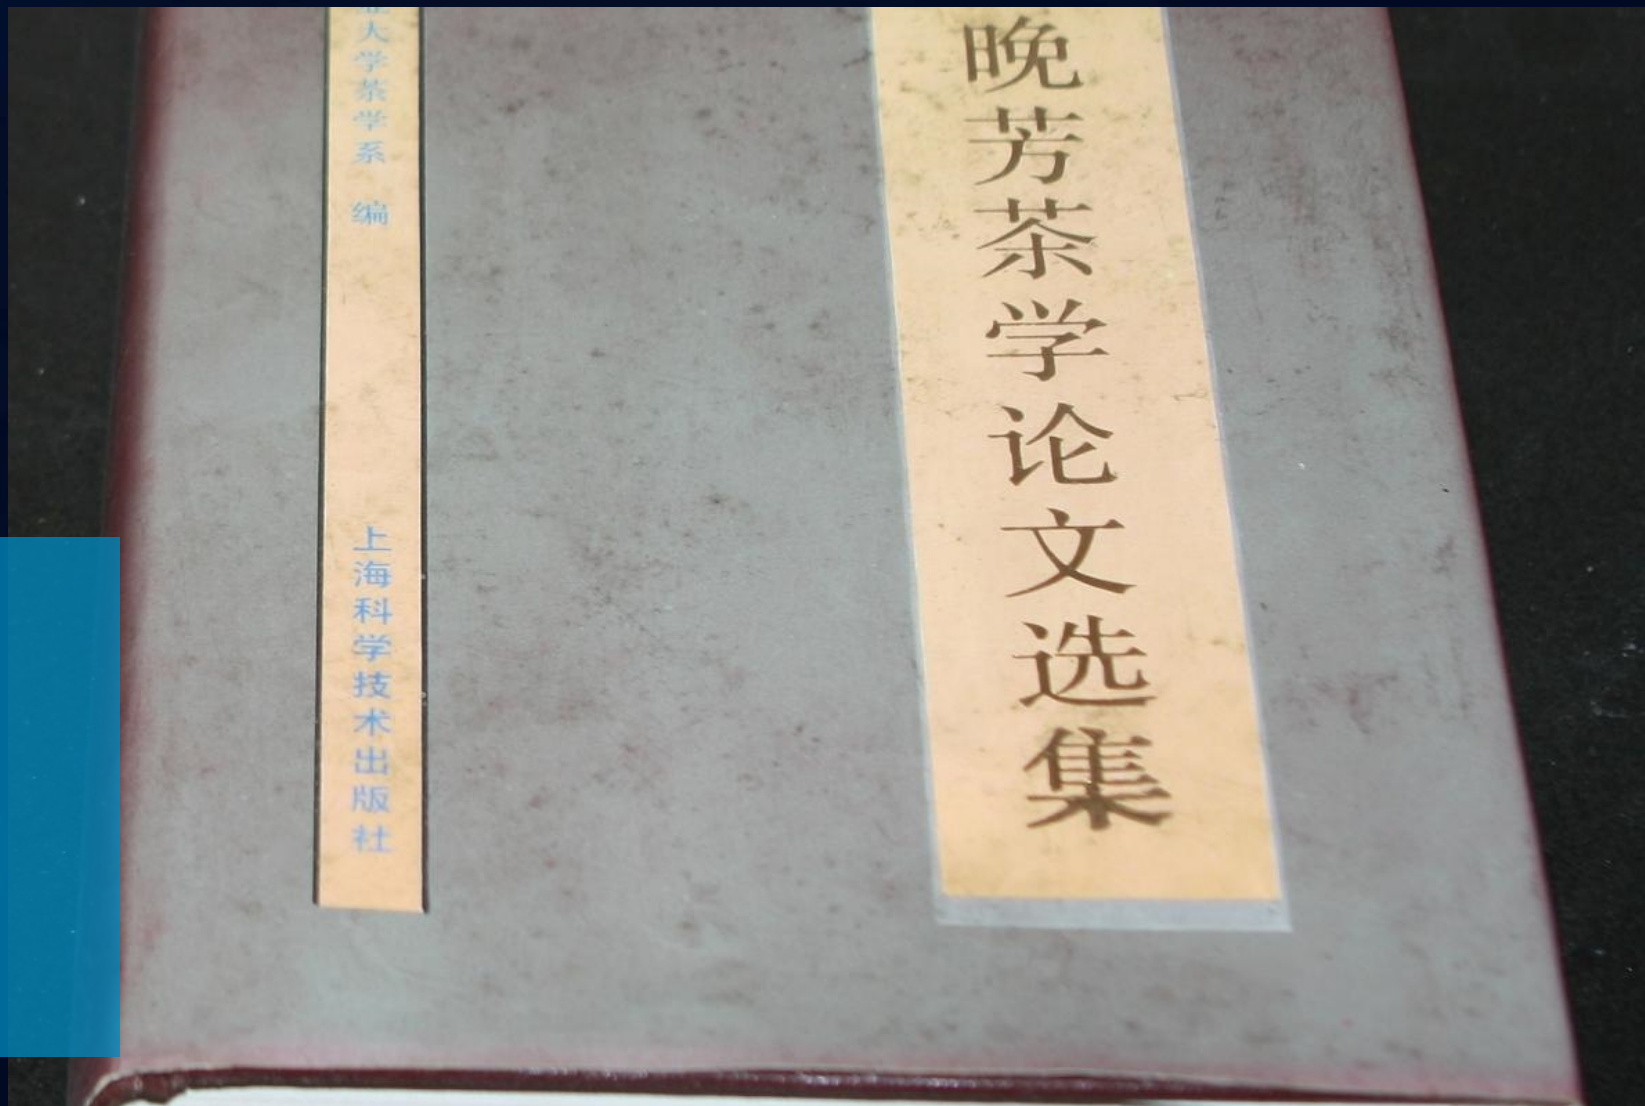 晚芳茶学论文选集
大学茶学系 编
上海科学技术出版社